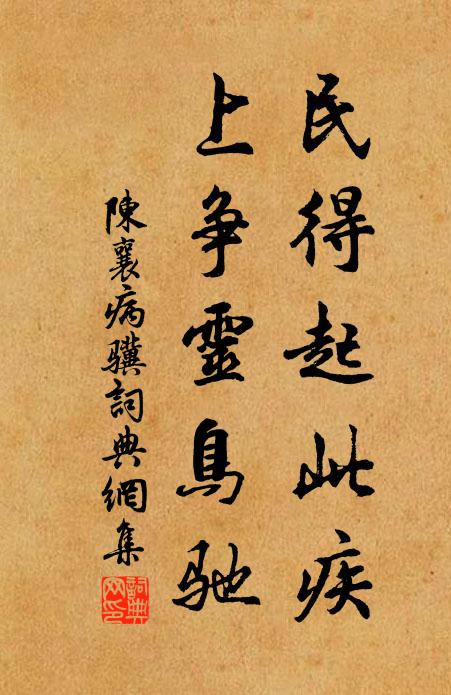 民得起此疾
上争靈鳥馳
陳襄病驥詞典網集
詞典網印